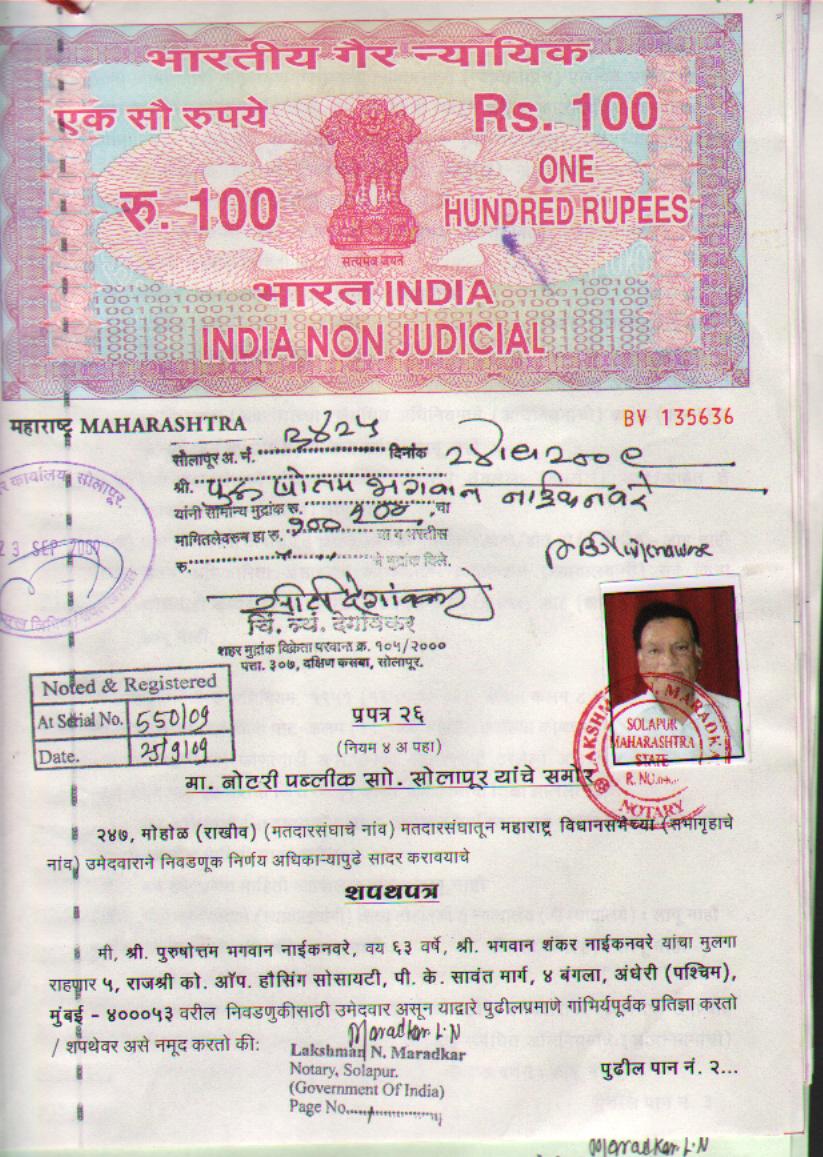 भारतीय गैर न्यायिक
एक सौ रुपये
Rs. 100
रु. 100
ONE
HUNDRED RUPEES
सत्यमेव जयते
भारत INDIA
INDIA NON JUDICIAL
महाराष्ट्र MAHARASHTRA
BV 135636
सोलापूर अ. नं. ३४२५ दिनांक २४।९।२००९
श्री. पुरुषोतम भगवान नाईकनवरे
यांनी सामान्य मुद्रांक रु. १०० चा
मागितलेवरुन हा रु. १००
रु. चे मुद्रांक दिले.
सोलापूर
23 SEP 2009
शहर मुद्रांक विक्रेता परवाना क्र. १०५/२०००
पत्ता. ३०७, दक्षिण कसबा, सोलापूर.
Noted & Registered
At Serial No. 550/09
Date. 25/9/09
प्रपत्र २६
(नियम ४ अ पहा)
SOLAPUR
MAHARASHTRA
STATE
NOTARY
मा. नोटरी पब्लीक सो. सोलापूर यांचे समोर
२४७, मोहोळ (राखीव) (मतदारसंघाचे नांव) मतदारसंघातून महाराष्ट्र विधानसभेच्या (सभागृहाचे
नांव) उमेदवाराने निवडणूक निर्णय अधिकाऱ्यापुढे सादर करावयाचे
शपथपत्र
मी, श्री. पुरुषोत्तम भगवान नाईकनवरे, वय ६३ वर्षे, श्री. भगवान शंकर नाईकनवरे यांचा मुलगा
राहणार ५, राजश्री को. ऑप. हौसिंग सोसायटी, पी. के. सावंत मार्ग, ४ बंगला, अंधेरी (पश्चिम),
मुंबई – ४०००५३ वरील निवडणुकीसाठी उमेदवार असून याद्वारे पुढीलप्रमाणे गांभिर्यपूर्वक प्रतिज्ञा करतो
/ शपथेवर असे नमूद करतो की:
Maradkar L.N
Lakshman N. Maradkar
Notary, Solapur.
(Government Of India)
Page No. 1
पुढील पान नं. २...
Maradkar L.N